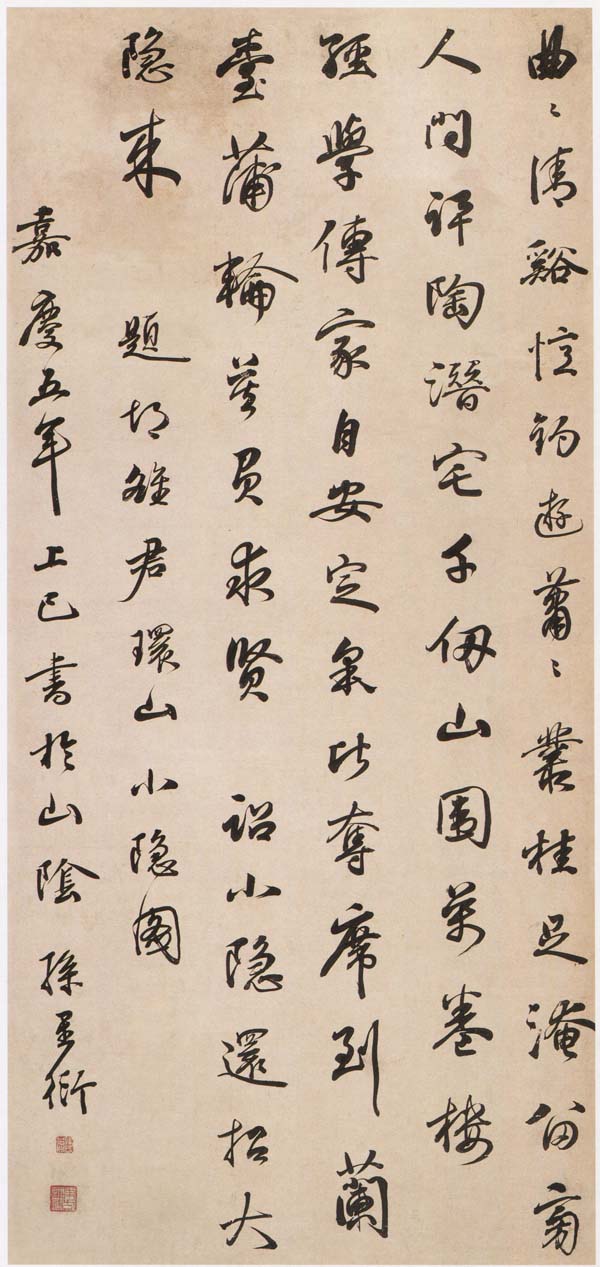 曲〻清谿憶釣遊蕭〻叢桂足淹留旁
人問訊陶潛宅千仞山圍萬卷樓
經學傳家自安定皋比奪席到蘭
臺蒲輪莫負求賢 詔小隱還招大
隱來 題胡雒君環山小隱圖
嘉慶五年上巳書於山陰 孫星衍